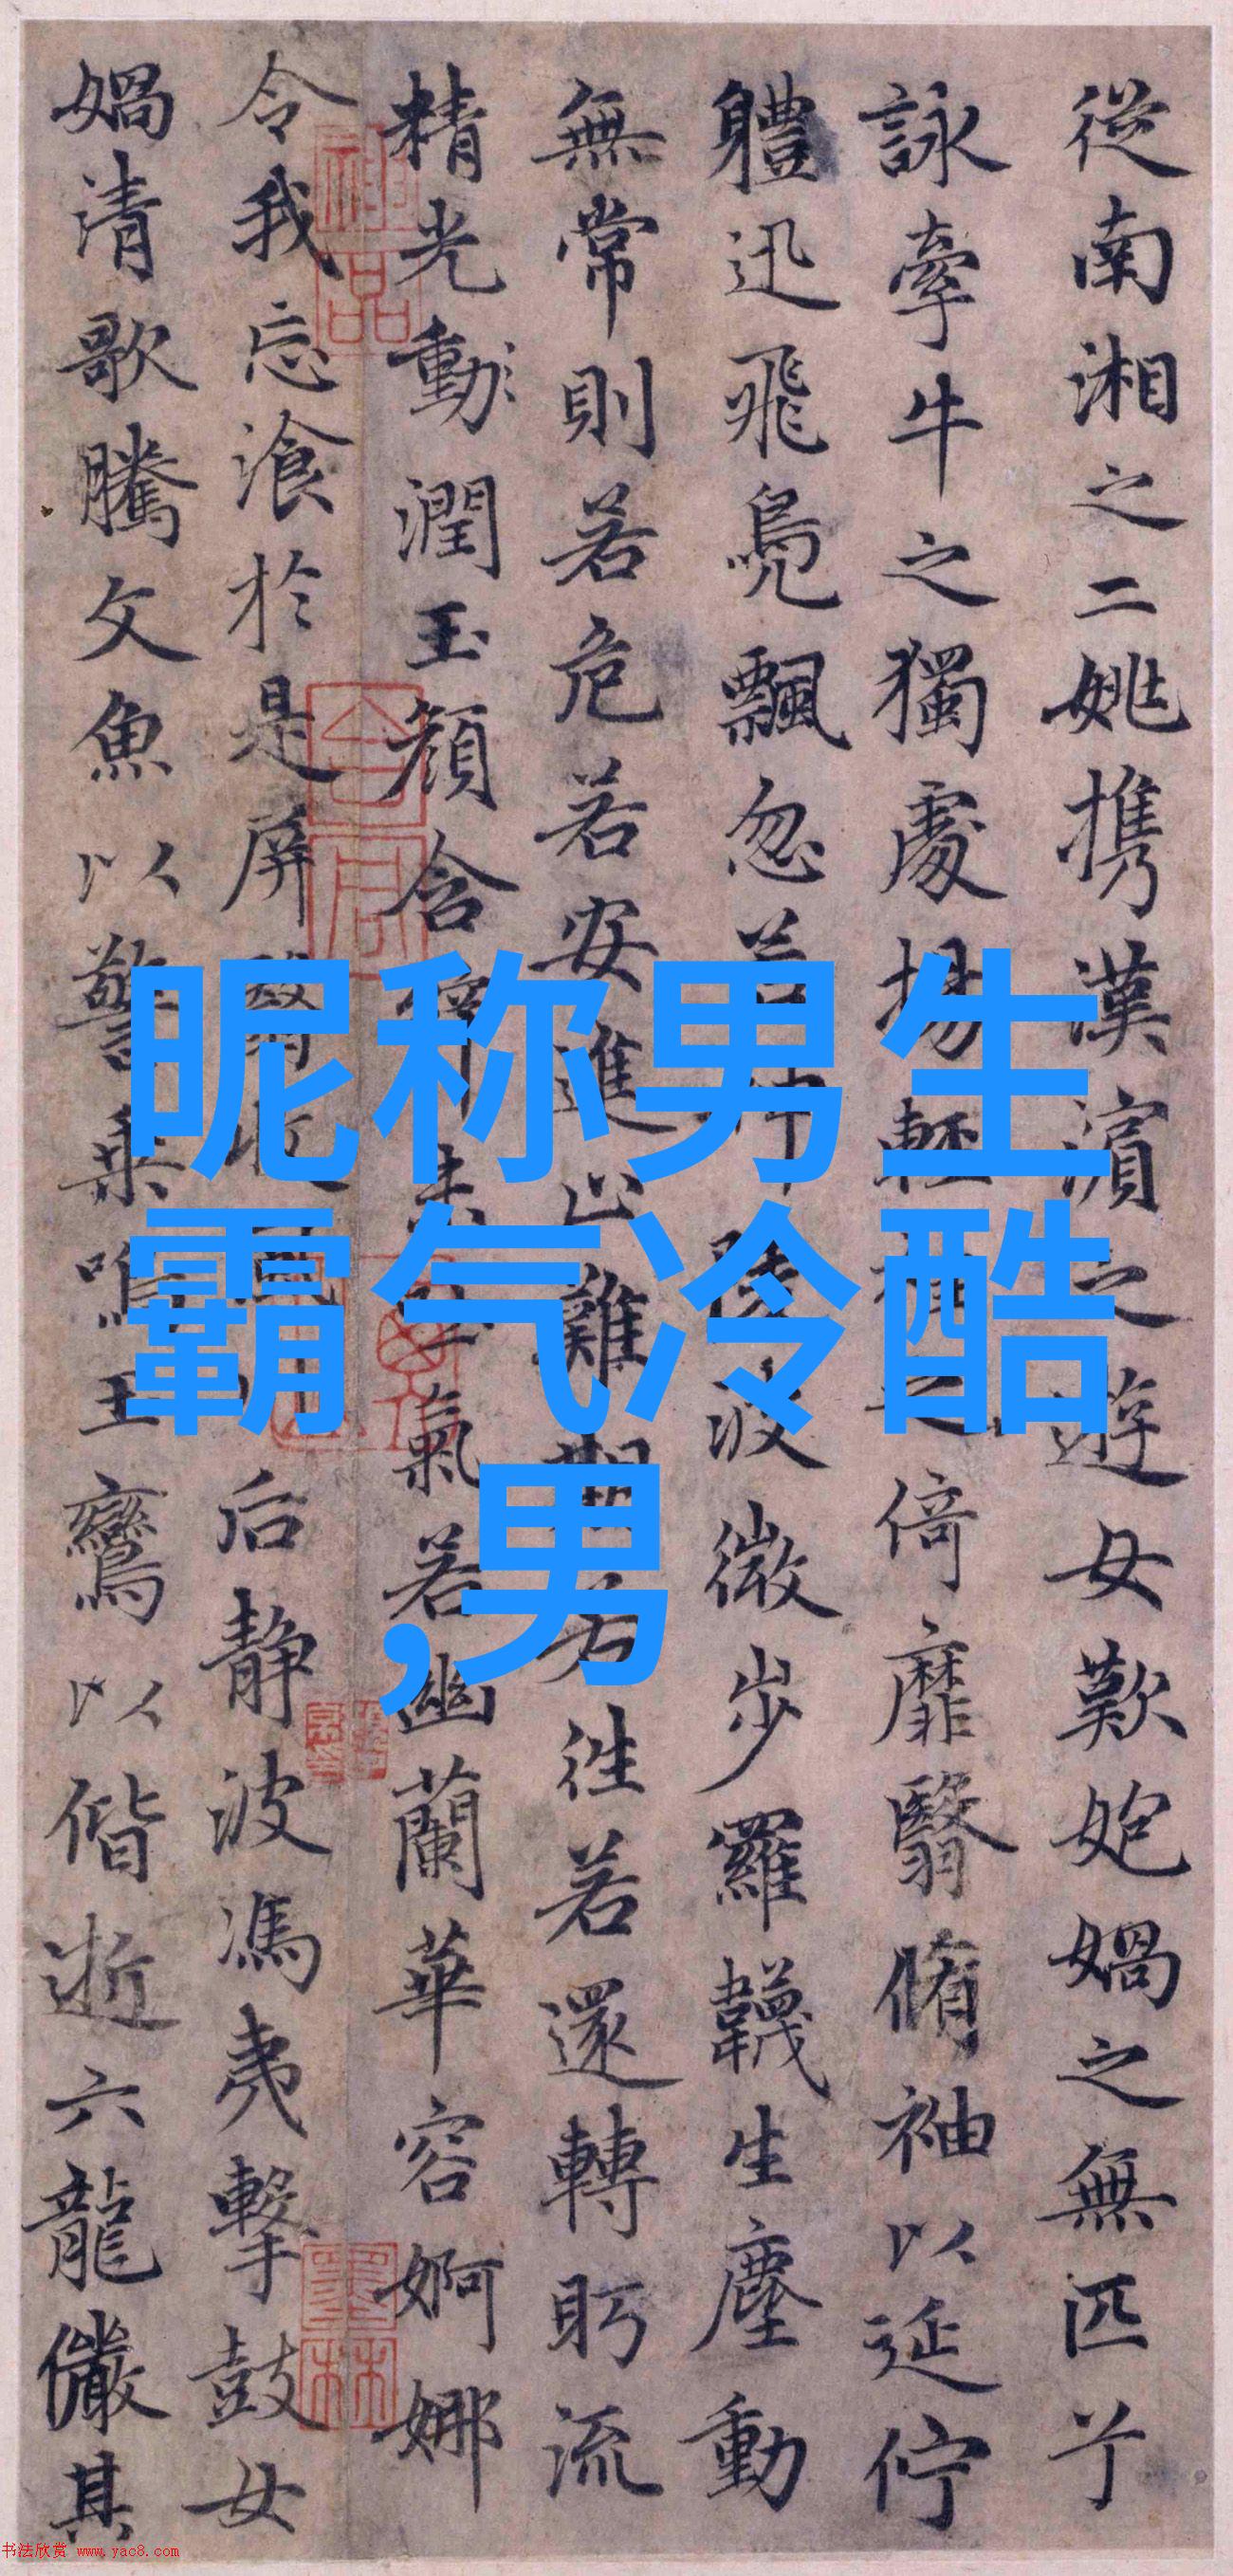 從南湘之二姚携漢濱之遊女歎媧之無匹兮
詠牽牛之獨處揚輕袿之倚靡翳脩袖以延佇
軆迅飛鳧飄忽若神陵波微步羅韈生塵動
無常則若危若安進止難期若往若還轉眄流
精光動潤玉顏含辭未吐氣若幽蘭華容婀娜
令我忘飡於是屏翳收風川后靜波馮夷擊鼓女
媧清歌騰文魚以警乘鳴玉鸞以偕逝六龍儼其
神品
墨林
昵称男生
霸气冷酷
,男
书法欣赏 www.yac8.com